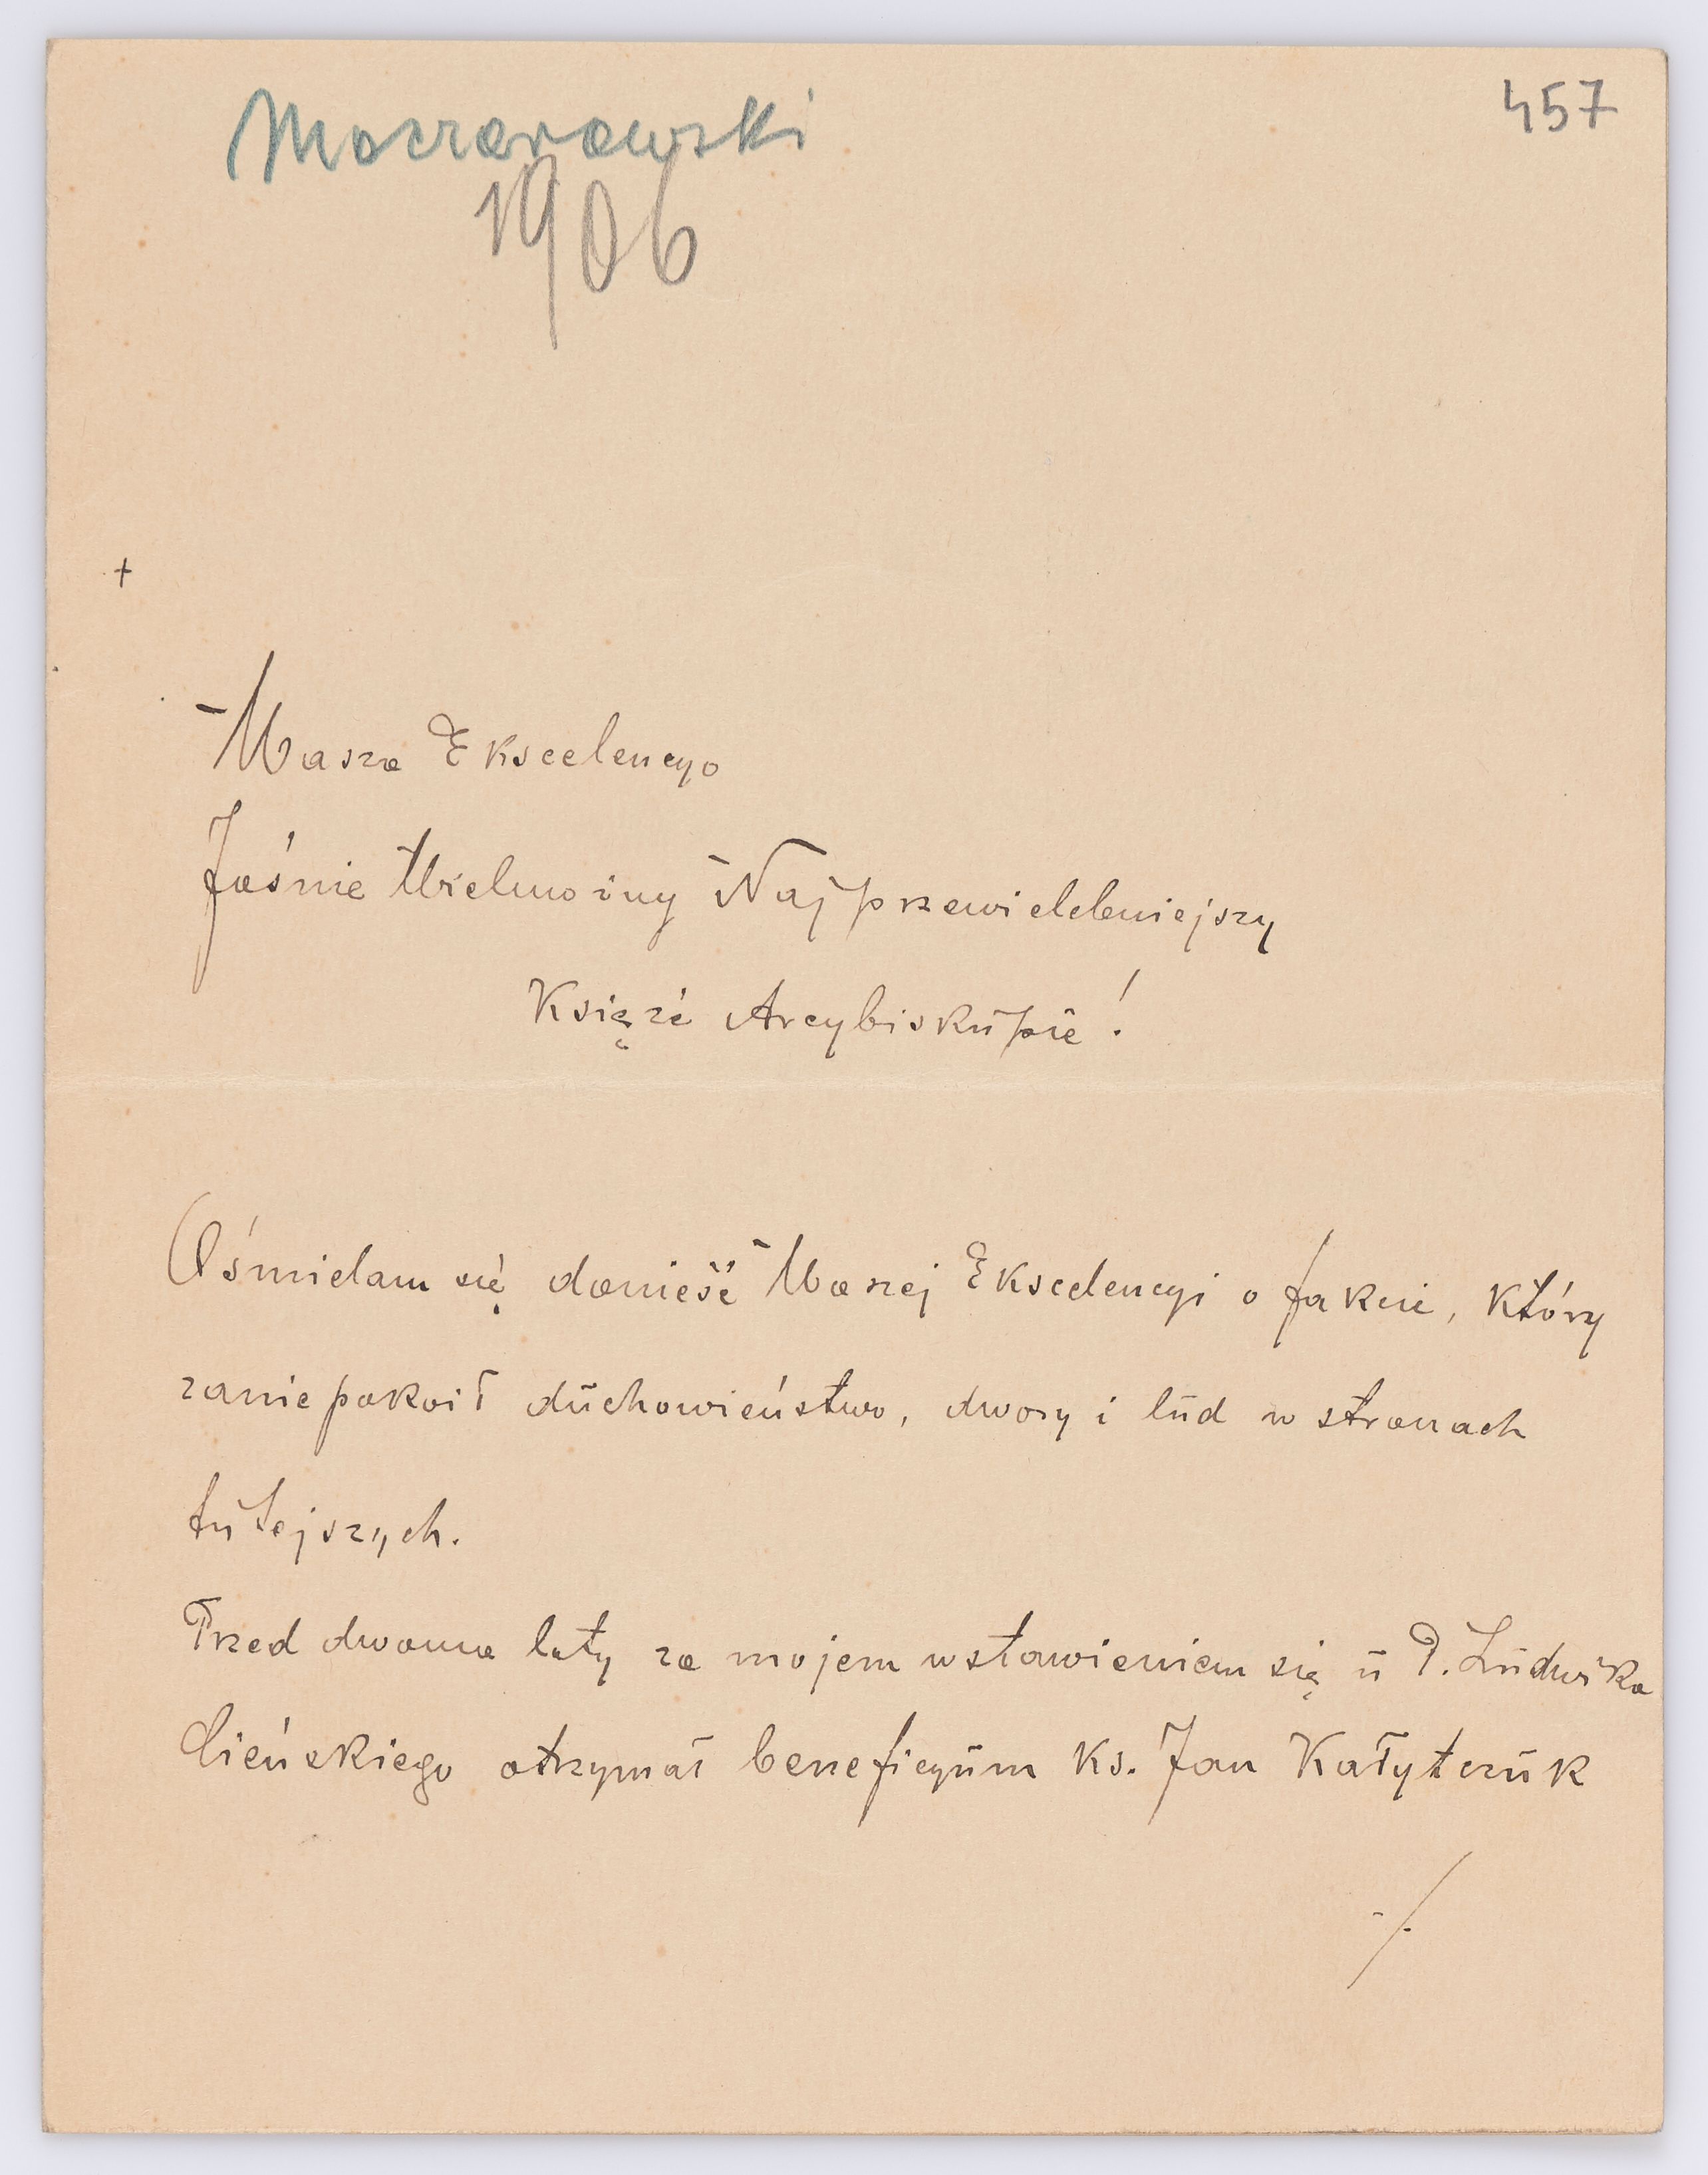 457
Moczarowski
1906
+
Wasza Ekscelencyo
Jaśnie Wielmożny Najprzewielebniejszy
Księże Arcybiskupie!
Ośmielam się donieść Waszej Ekscelencyi o fakcie, który
zaniepokoił duchowieństwo, dwory i lud w stronach
tutejszych.
Przed dwoma laty za mojem wstawieniem się u P. Ludwika
Cieńskiego otrzymał beneficyum ks. Jan Kałytczuk
./.